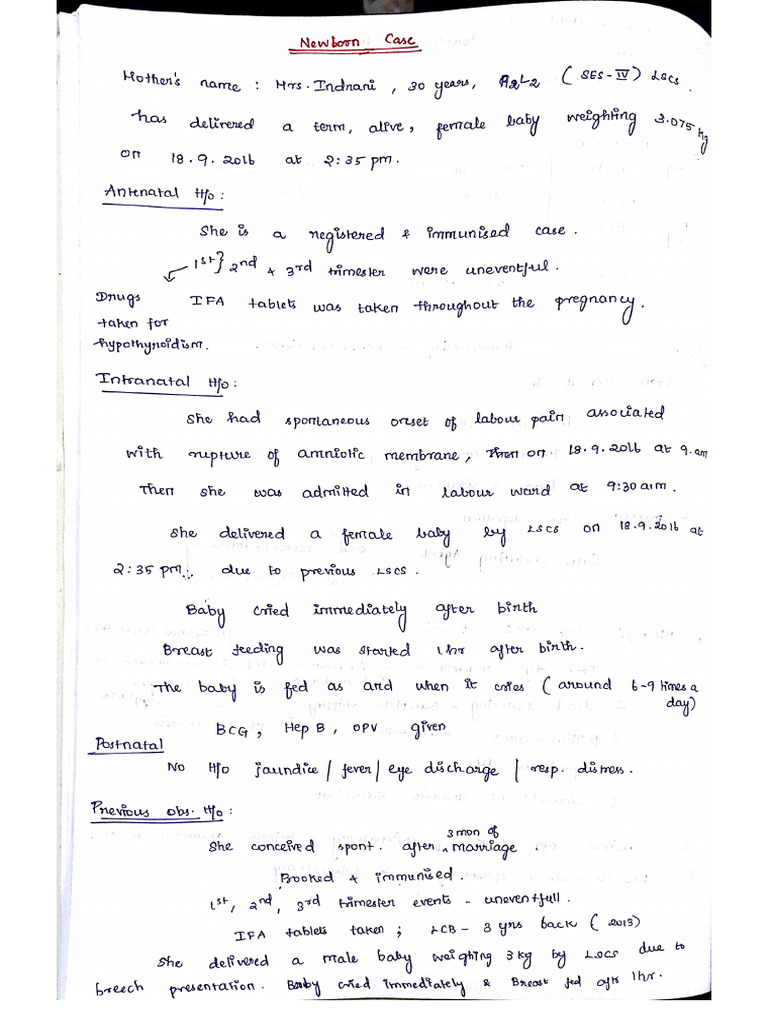 Newborn Case
Mother's name : Mrs. Indrani , 30 years, P2L2 ( SES - IV ) LSCS .
has delivered a term, alive, female baby weighing 3.075 kg
on 18.9.2016 at 2:35 pm.
Antenatal H/o :
She is a registered & immunised case .
1st} 2nd & 3rd trimester were uneventful .
Drugs IFA tablets was taken throughout the pregnancy .
taken for
hypothyroidism.
Intranatal H/o :
She had spontaneous onset of labour pain associated
with rupture of amniotic membrane, on 18.9.2016 at 9. am
Then she was admitted in labour ward at 9:30 a.m .
She delivered a female baby by LSCS on 18.9.2016 at
2:35 pm. due to previous LSCS .
Baby cried immediately after birth
Breast feeding was started 1 hr after birth.
The baby is fed as and when it cries ( around 6-9 times a
day)
BCG , Hep B , OPV given
Postnatal
No H/o jaundice / fever / eye discharge / resp. distress.
Previous obs. H/o :
3 mon of
She conceived spont. after ^ marriage .
Booked & immunised .
1st, 2nd, 3rd trimester events - uneventfull .
IFA tablets taken ; LCB - 3 yrs back ( 2013)
She delivered a male baby weighing 3 kg by LSCS due to
breech presentation . Baby cried immediately & Breast fed aft 1hr.